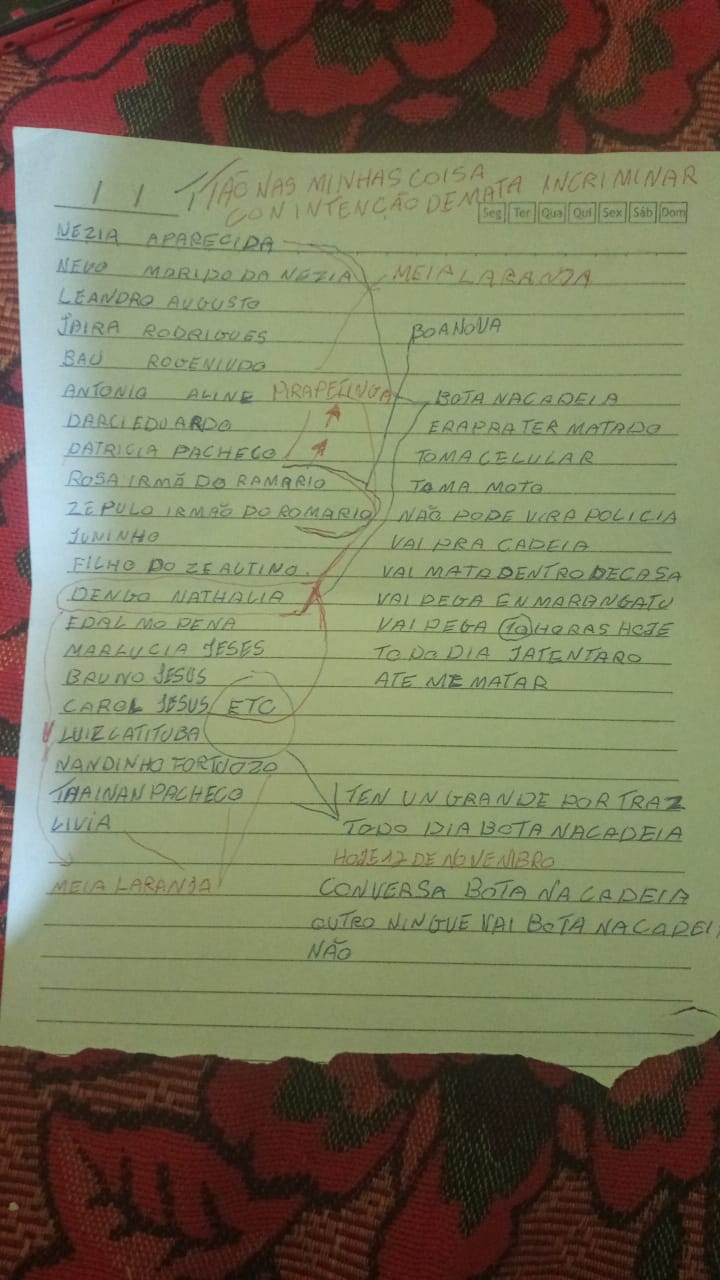 / / TTÃO NAS MINHAS COISA
CON INTENÇÃO DE MATA INCRIMINAR
Seg Ter Qua Qui Sex Sáb Dom
NEZIA APARECIDA
NEVO MARIDO DA NEZIA MEIA LARANJA
LEANDRO AUGUSTO
JAIRA RODRIGUES BOA NOVA
BAU ROGENIUDO
ANTONIO ALINE MRAPETINGA BOTA NA CADEIA
DARCI EDUARDO ERA PRA TER MATADO
PATRICIA PACHECO TOMA CELULAR
ROSA IRMÃ DO RAMARIO TOMA MOTO
ZÉ PULO IRMÃO DO ROMARIO NÃO PODE VIRA POLICIA
JUNINHO VAI PRA CADEIA
FILHO DO ZE ALTINO VAI MATA DENTRO DE CASA
DENGO NATHALIA VAI PEGA EN MARANGATU
EDALMO PENA VAI PEGA 10 HORAS HOJE
MARLUCIA JESES TODO DIA JA TENTARO
BRUNO JESUS ATE ME MATAR
CAROL JESUS ETC
LUIZ CATITUBA
NANDINHO FORTUOZO
THAINAN PACHECO TEN UN GRANDE POR TRAZ
LIVIA TODO DIA BOTA NA CADEIA
HOJE 12 DE NOVEMBRO
MEIA LARANJA CONVERSA BOTA NA CADEIA
OUTRO NINGUE VAI BOTA NA CADEI
NÃO